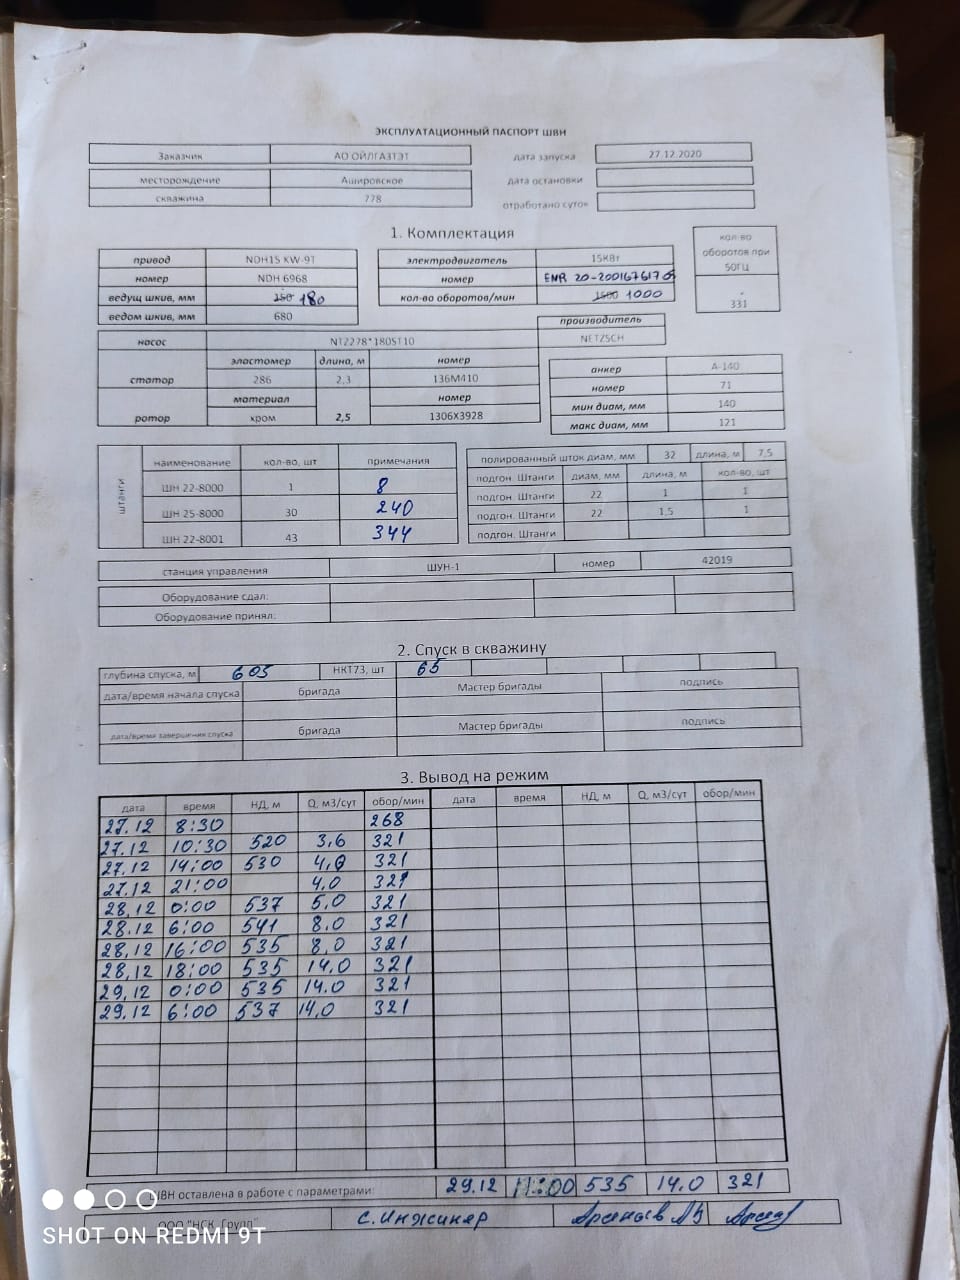 ЭКСПЛУАТАЦИОННЫЙ ПАСПОРТ ШВН
Заказчик АО ОЙЛГАЗТЭТ дата запуска 27.12.2020
месторождение Ашировское дата остановки
скважина 778 отработано суток
1. Комплектация
кол-во оборотов при 50ГЦ 331
привод NDH15 KW-9T электродвигатель 15КВт
номер NDH 6968 номер ENR 20-2001676170
ведущ шкив, мм 150 180 кол-во оборотов/мин 1500 1000
ведом шкив, мм 680
производитель
насос NTZ278*180ST10 NETZSCH
эластомер длина, м номер
статор 286 2,3 136М410
материал номер
ротор хром 2,5 1306Х3928
анкер А-140
номер 71
мин диам, мм 140
макс диам, мм 121
штанги
наименование кол-во, шт примечания
ШН 22-8000 1 8
ШН 25-8000 30 240
ШН 22-8001 43 344
полированный шток диам, мм 32 длина, м 7,5
подгон. Штанги диам, мм длина, м кол-во, шт
подгон. Штанги 22 1 1
подгон. Штанги 22 1,5 1
подгон. Штанги
станция управления ШУН-1 номер 42019
Оборудование сдал:
Оборудование принял:
2. Спуск в скважину
глубина спуска, м 605 НКТ73, шт 65
дата/время начала спуска бригада Мастер бригады подпись
дата/время завершения спуска бригада Мастер бригады подпись
3. Вывод на режим
дата время НД, м Q, м3/сут обор/мин дата время НД, м Q, м3/сут обор/мин
27.12 8:30 268
27.12 10:30 520 3,6 321
27.12 14:00 530 4,0 321
27.12 21:00 4,0 321
28.12 0:00 537 5,0 321
28.12 6:00 541 8,0 321
28.12 16:00 535 8,0 321
28.12 18:00 535 14,0 321
29.12 0:00 535 14.0 321
29.12 6:00 537 14,0 321
ШВН оставлена в работе с параметрами: 29.12 11:00 535 14.0 321
ООО "НСК Групп" с. Инженер
SHOT ON REDMI 9T